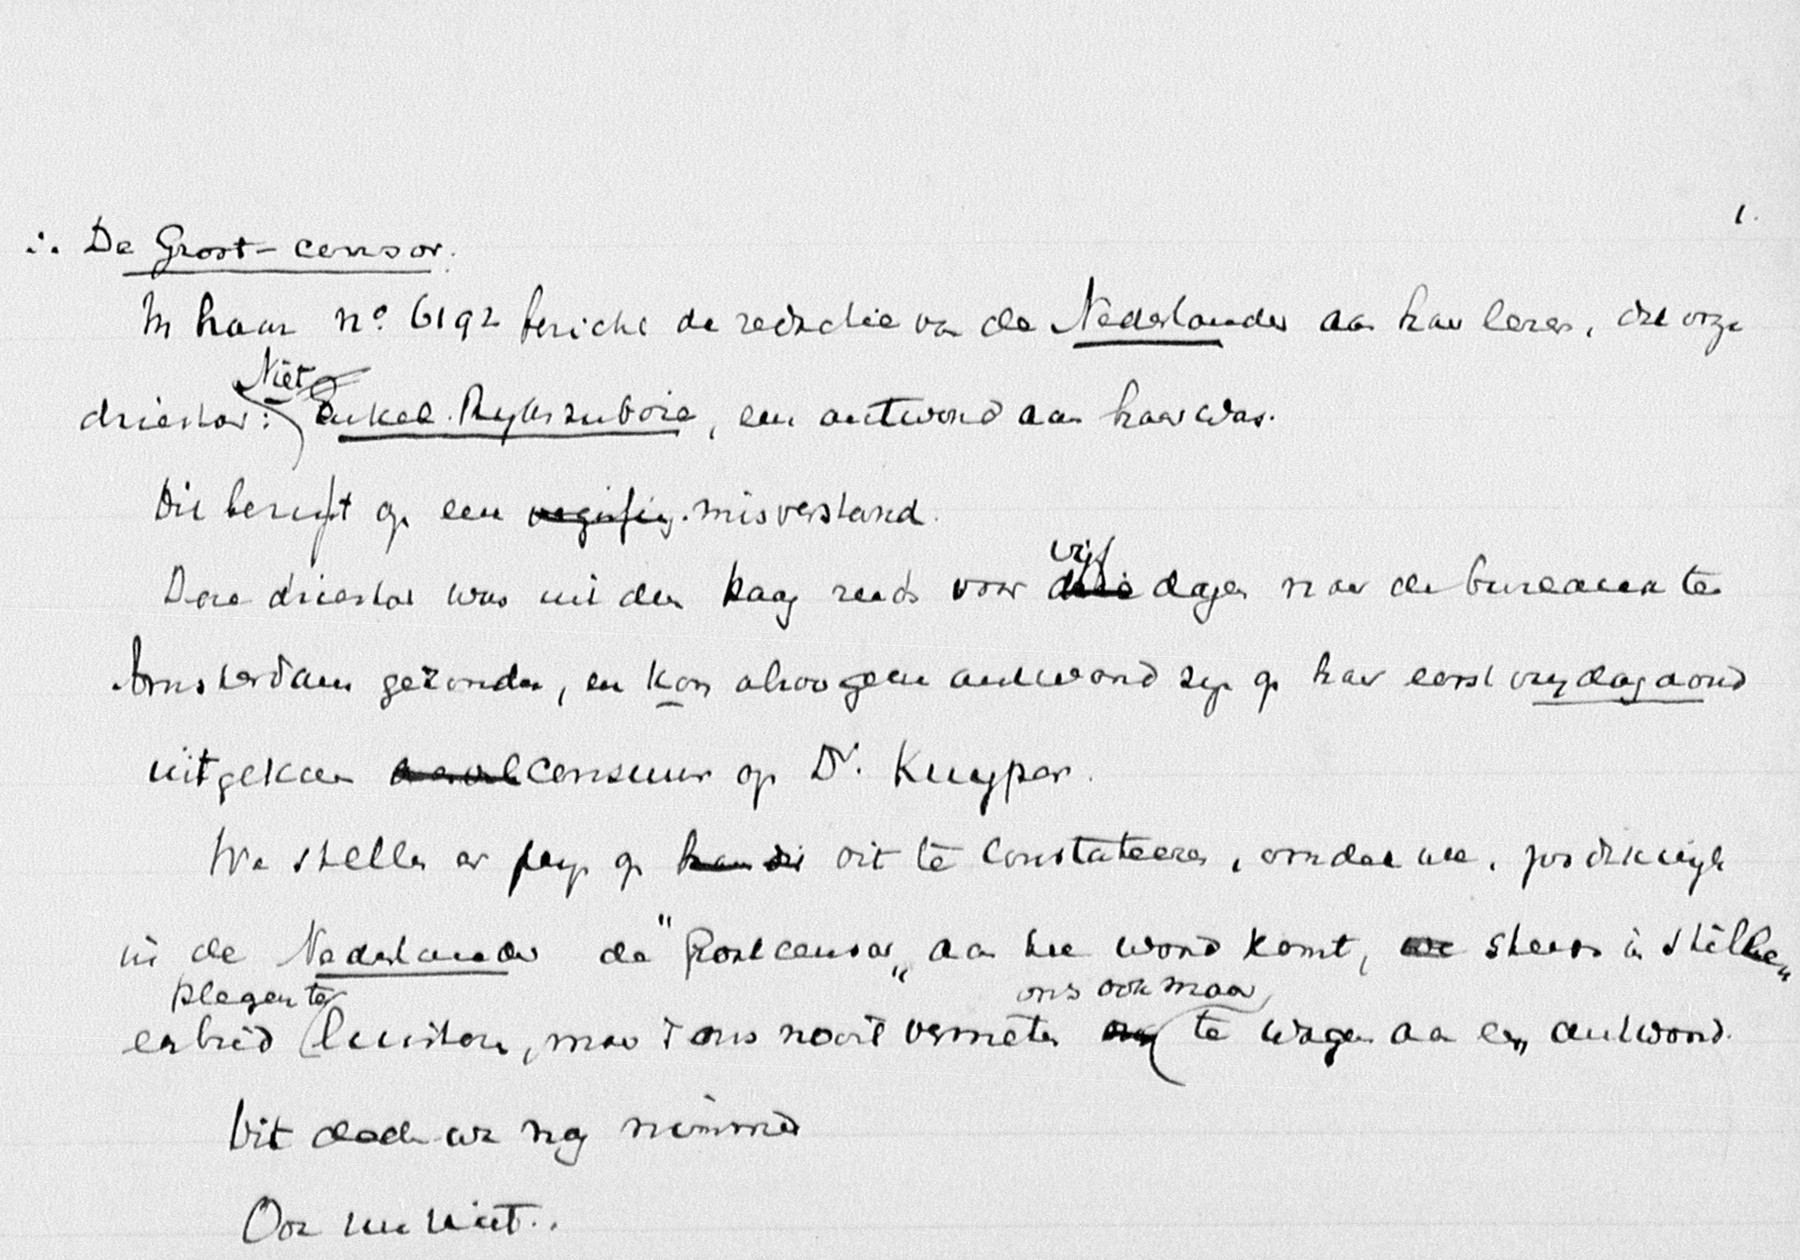 1.
∴ De Groot-censor.
In haar no. 6192 bericht de redactie van de Nederlander aan haar lezers, dat onze
driestar: Niet Enkel Ryks, een antwoord aan haar was.
Dit berust op een misverstand.
Deze driestar was uit den Haag reeds voor vijf dagen naar de bureaux te
Amsterdam gezonden, en kon alzoo geen antwoord zijn op haar eerst vrydagavond
uitgekomen censuur op Dr. Kuyper.
We stellen er prijs op dit te constateeren, omdat we,
in de Nederlander de "Grootcensor" aan het woord komt, steeds in stillen
plegen te ons ook maar
eerbied luisteren, maar ons nooit vermeten te wagen aan een antwoord.
Dit deden we nog nimmer
Ook nu niet.